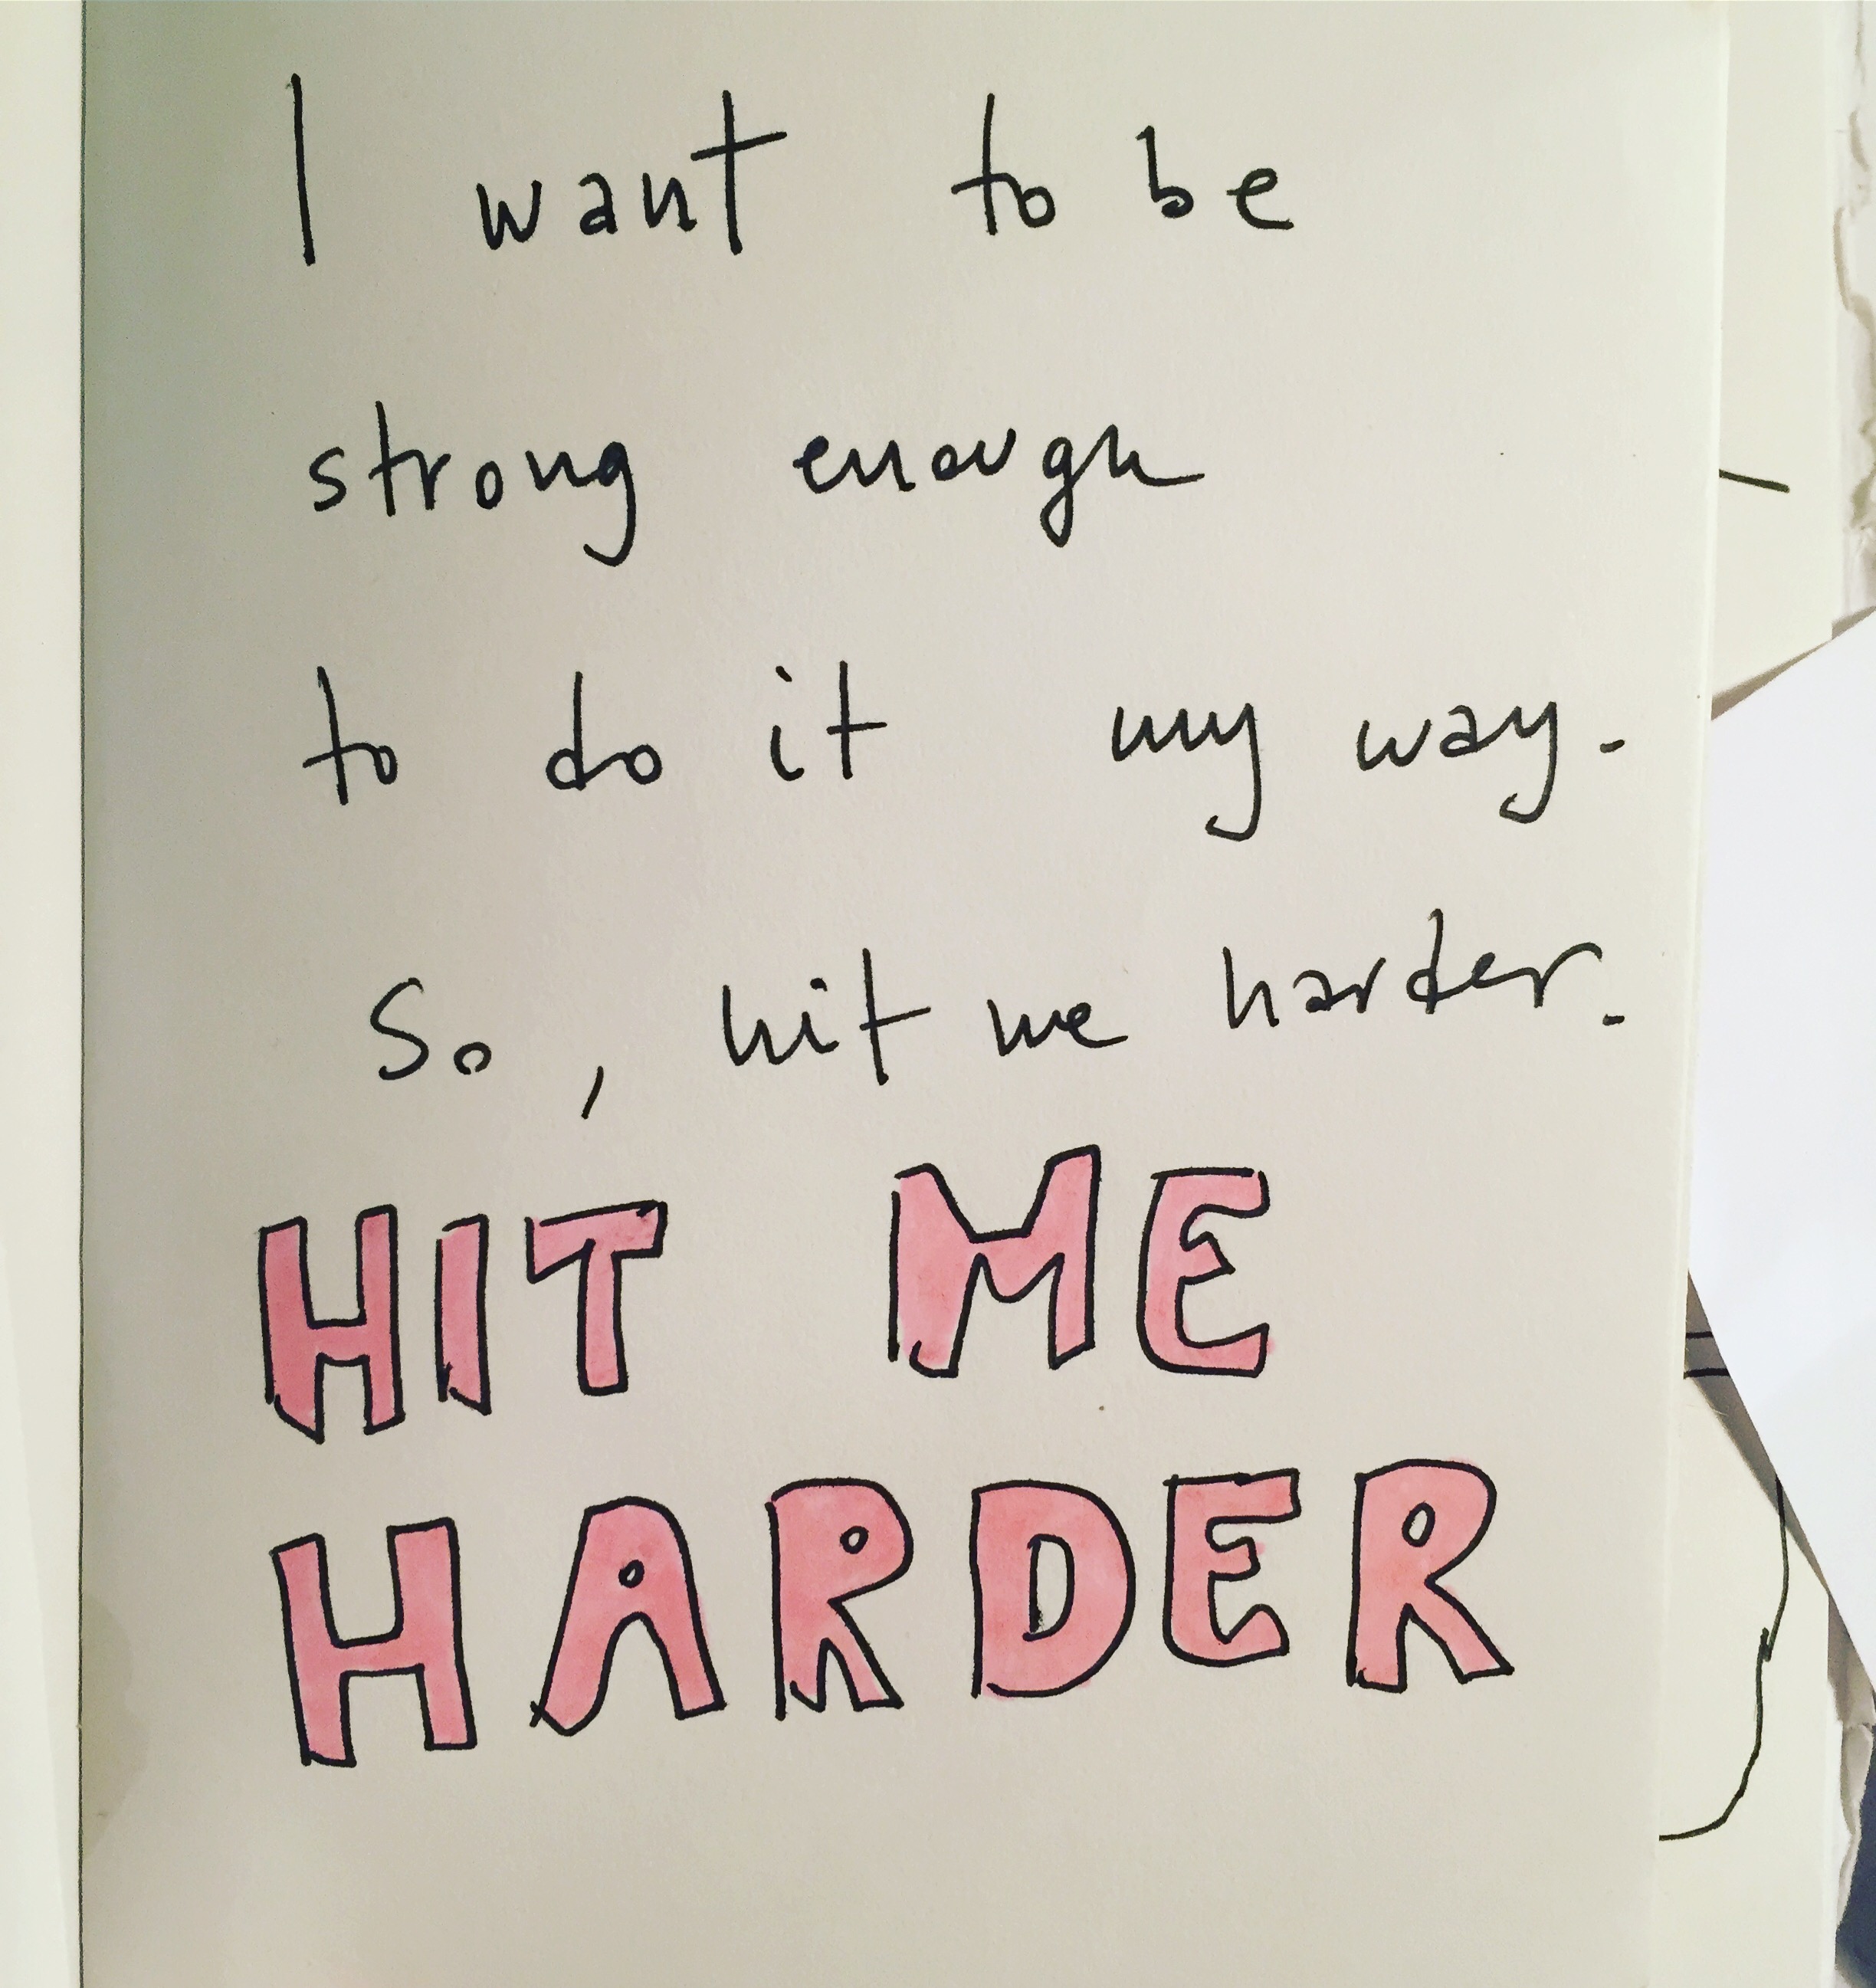 I want to be
strong enough
to do it my way.
So, hit me harder.
HIT ME
HARDER